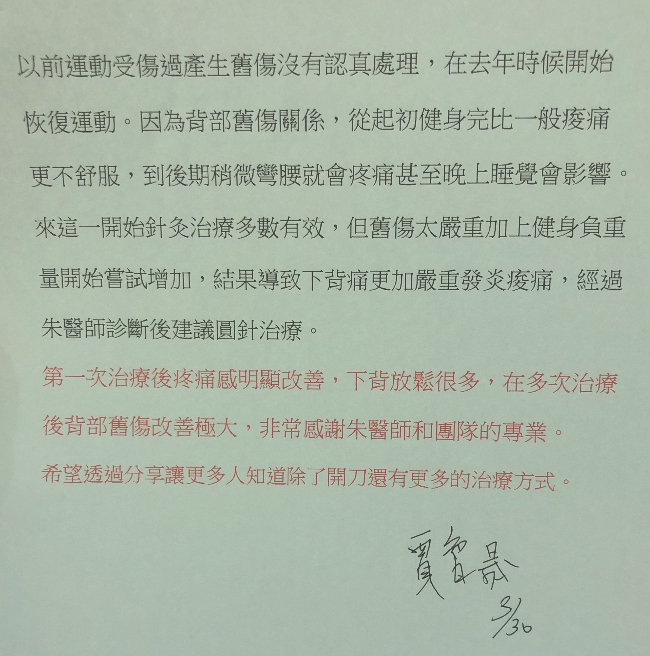 以前運動受傷過產生舊傷沒有認真處理，在去年時候開始
恢復運動。因為背部舊傷關係，從起初健身完比一般痠痛
更不舒服，到後期稍微彎腰就會疼痛甚至晚上睡覺會影響。
來這一開始針灸治療多數有效，但舊傷太嚴重加上健身負重
量開始嘗試增加，結果導致下背痛更加嚴重發炎痠痛，經過
朱醫師診斷後建議圓針治療。
第一次治療後疼痛感明顯改善，下背放鬆很多，在多次治療
後背部舊傷改善極大，非常感謝朱醫師和團隊的專業。
希望透過分享讓更多人知道除了開刀還有更多的治療方式。
賈
/30